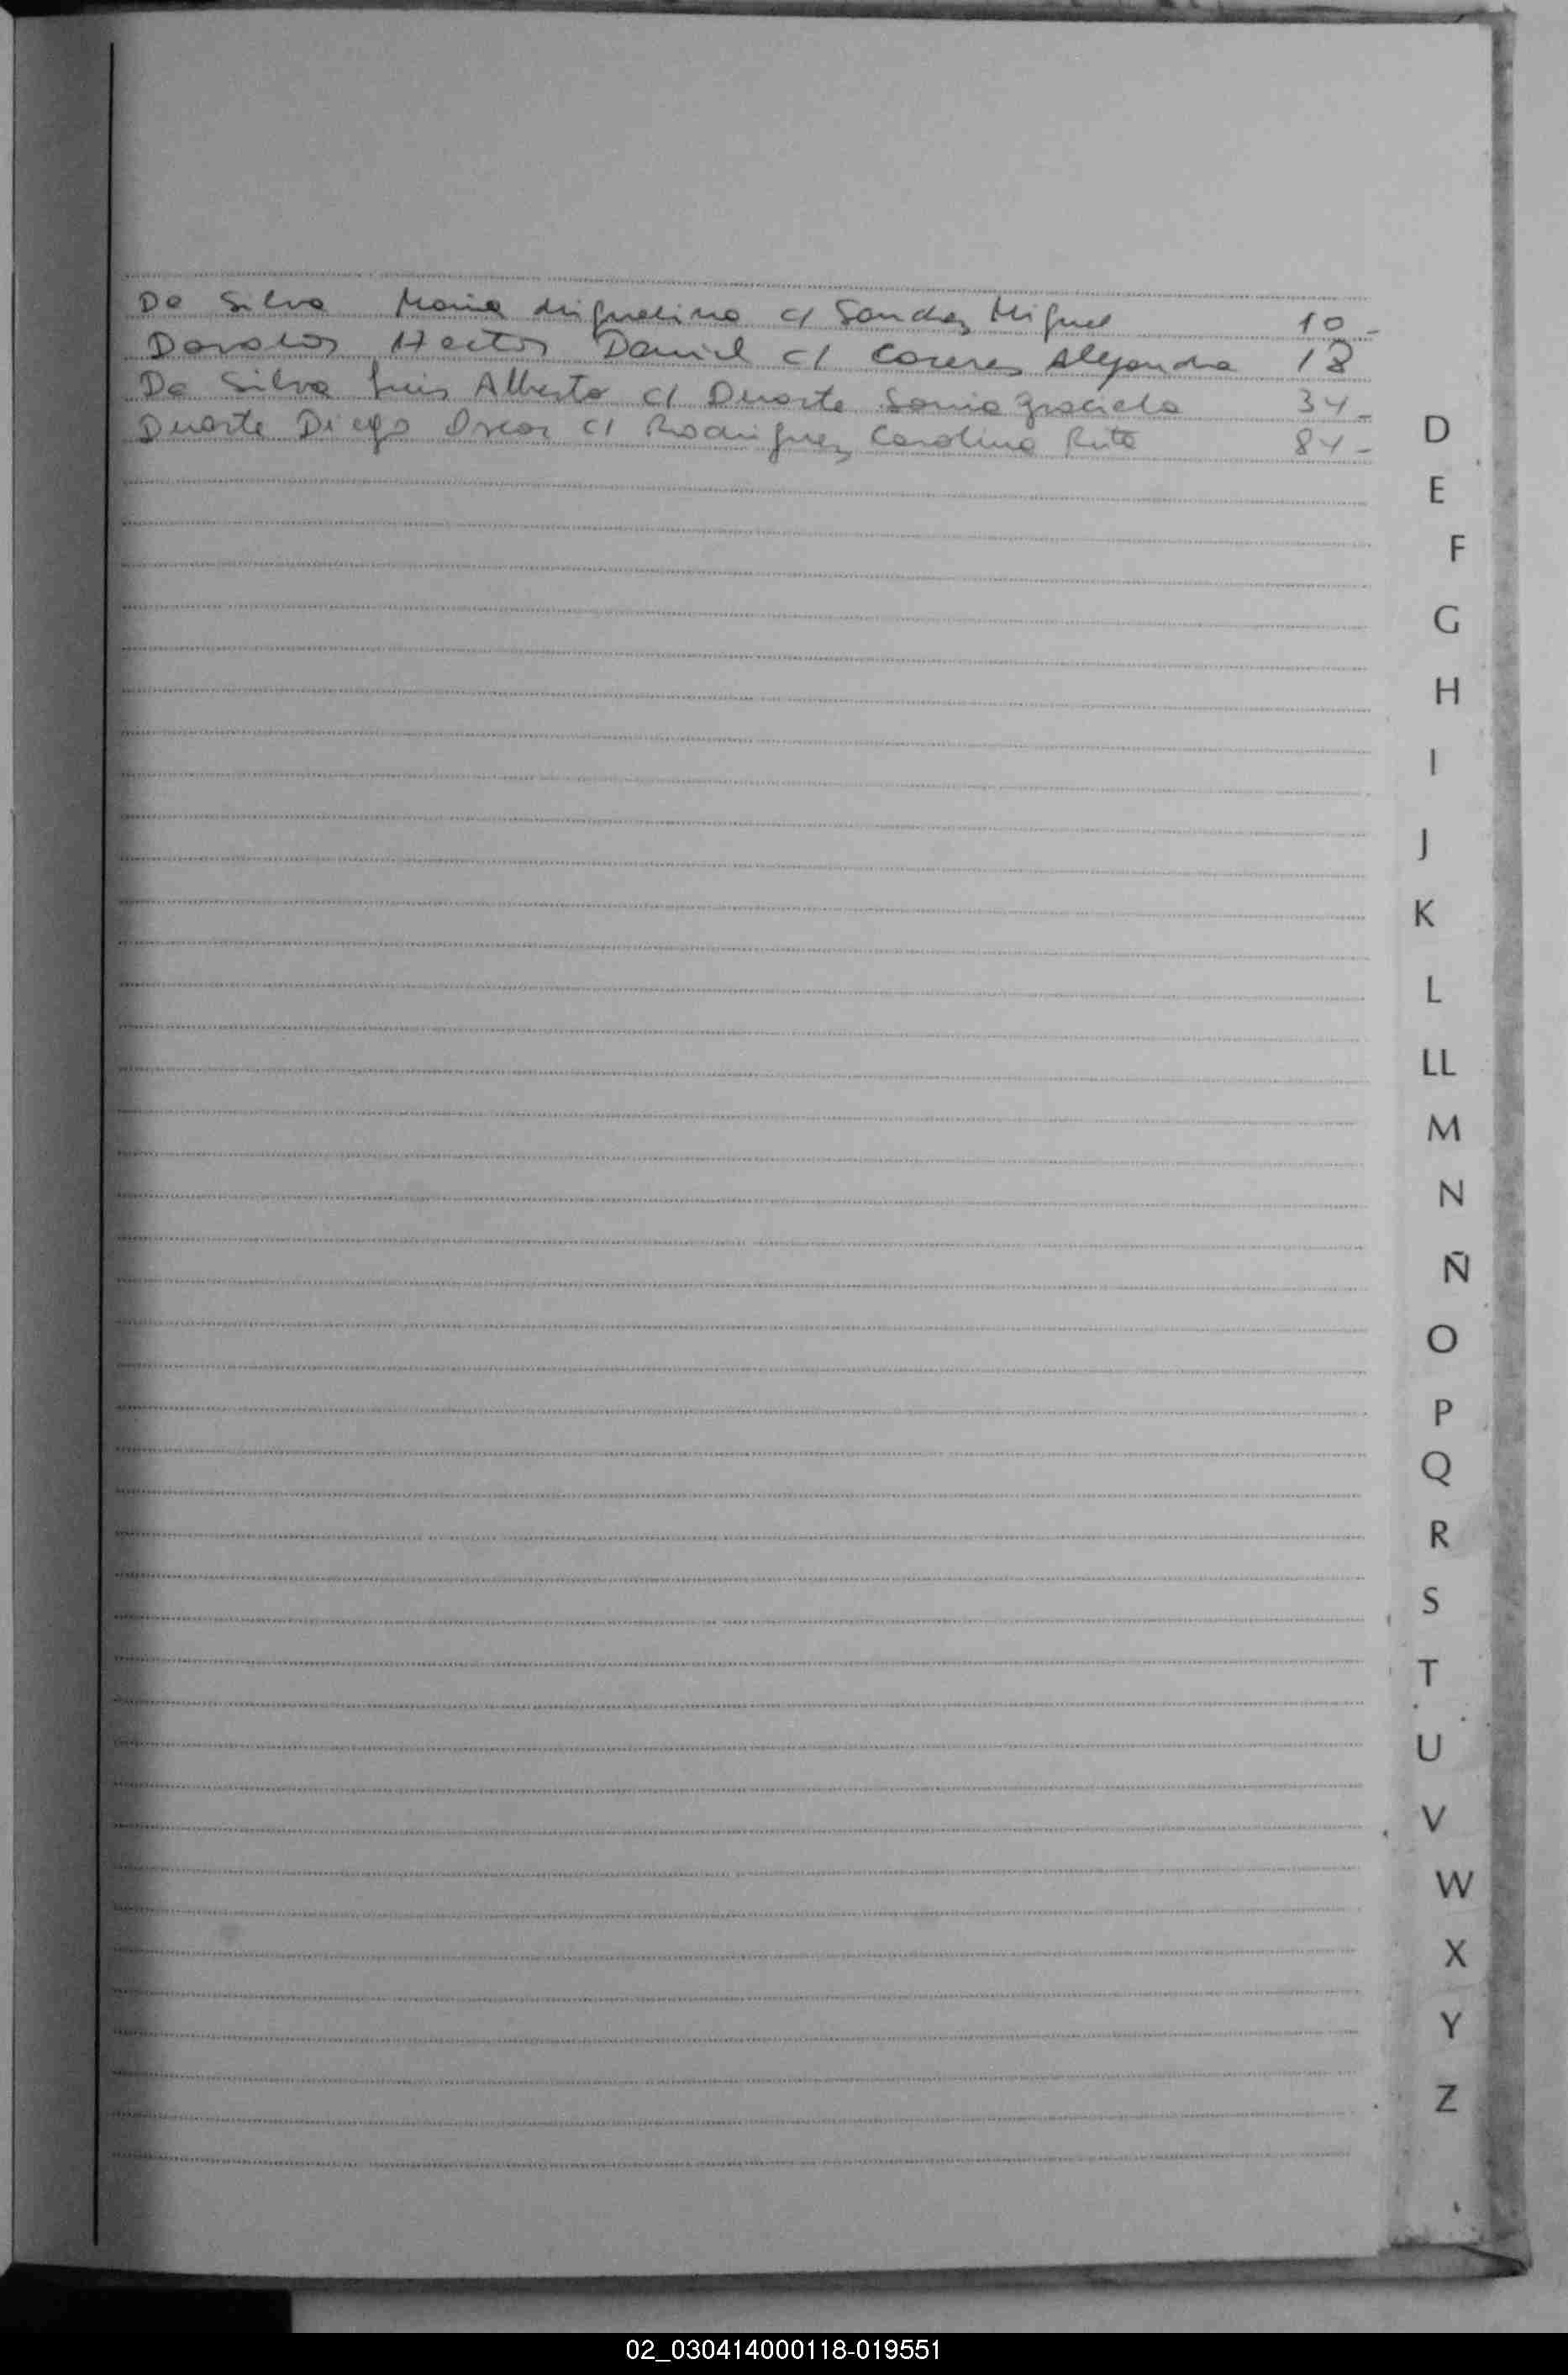 Da Silva Maria Miguelina c/ Sanchez Miguel 10-
Davalos Hector Daniel c/ Caceres Alejandra 18
Da Silva Luis Alberto c/ Duarte Sonia Graciela 34-
Duarte Diego Oscar c/ Rodriguez Carolina Rita 84-
D
E
F
G
H
I
J
K
L
LL
M
N
Ñ
O
P
Q
R
S
T
U
V
W
X
Y
Z
02_030414000118-019551